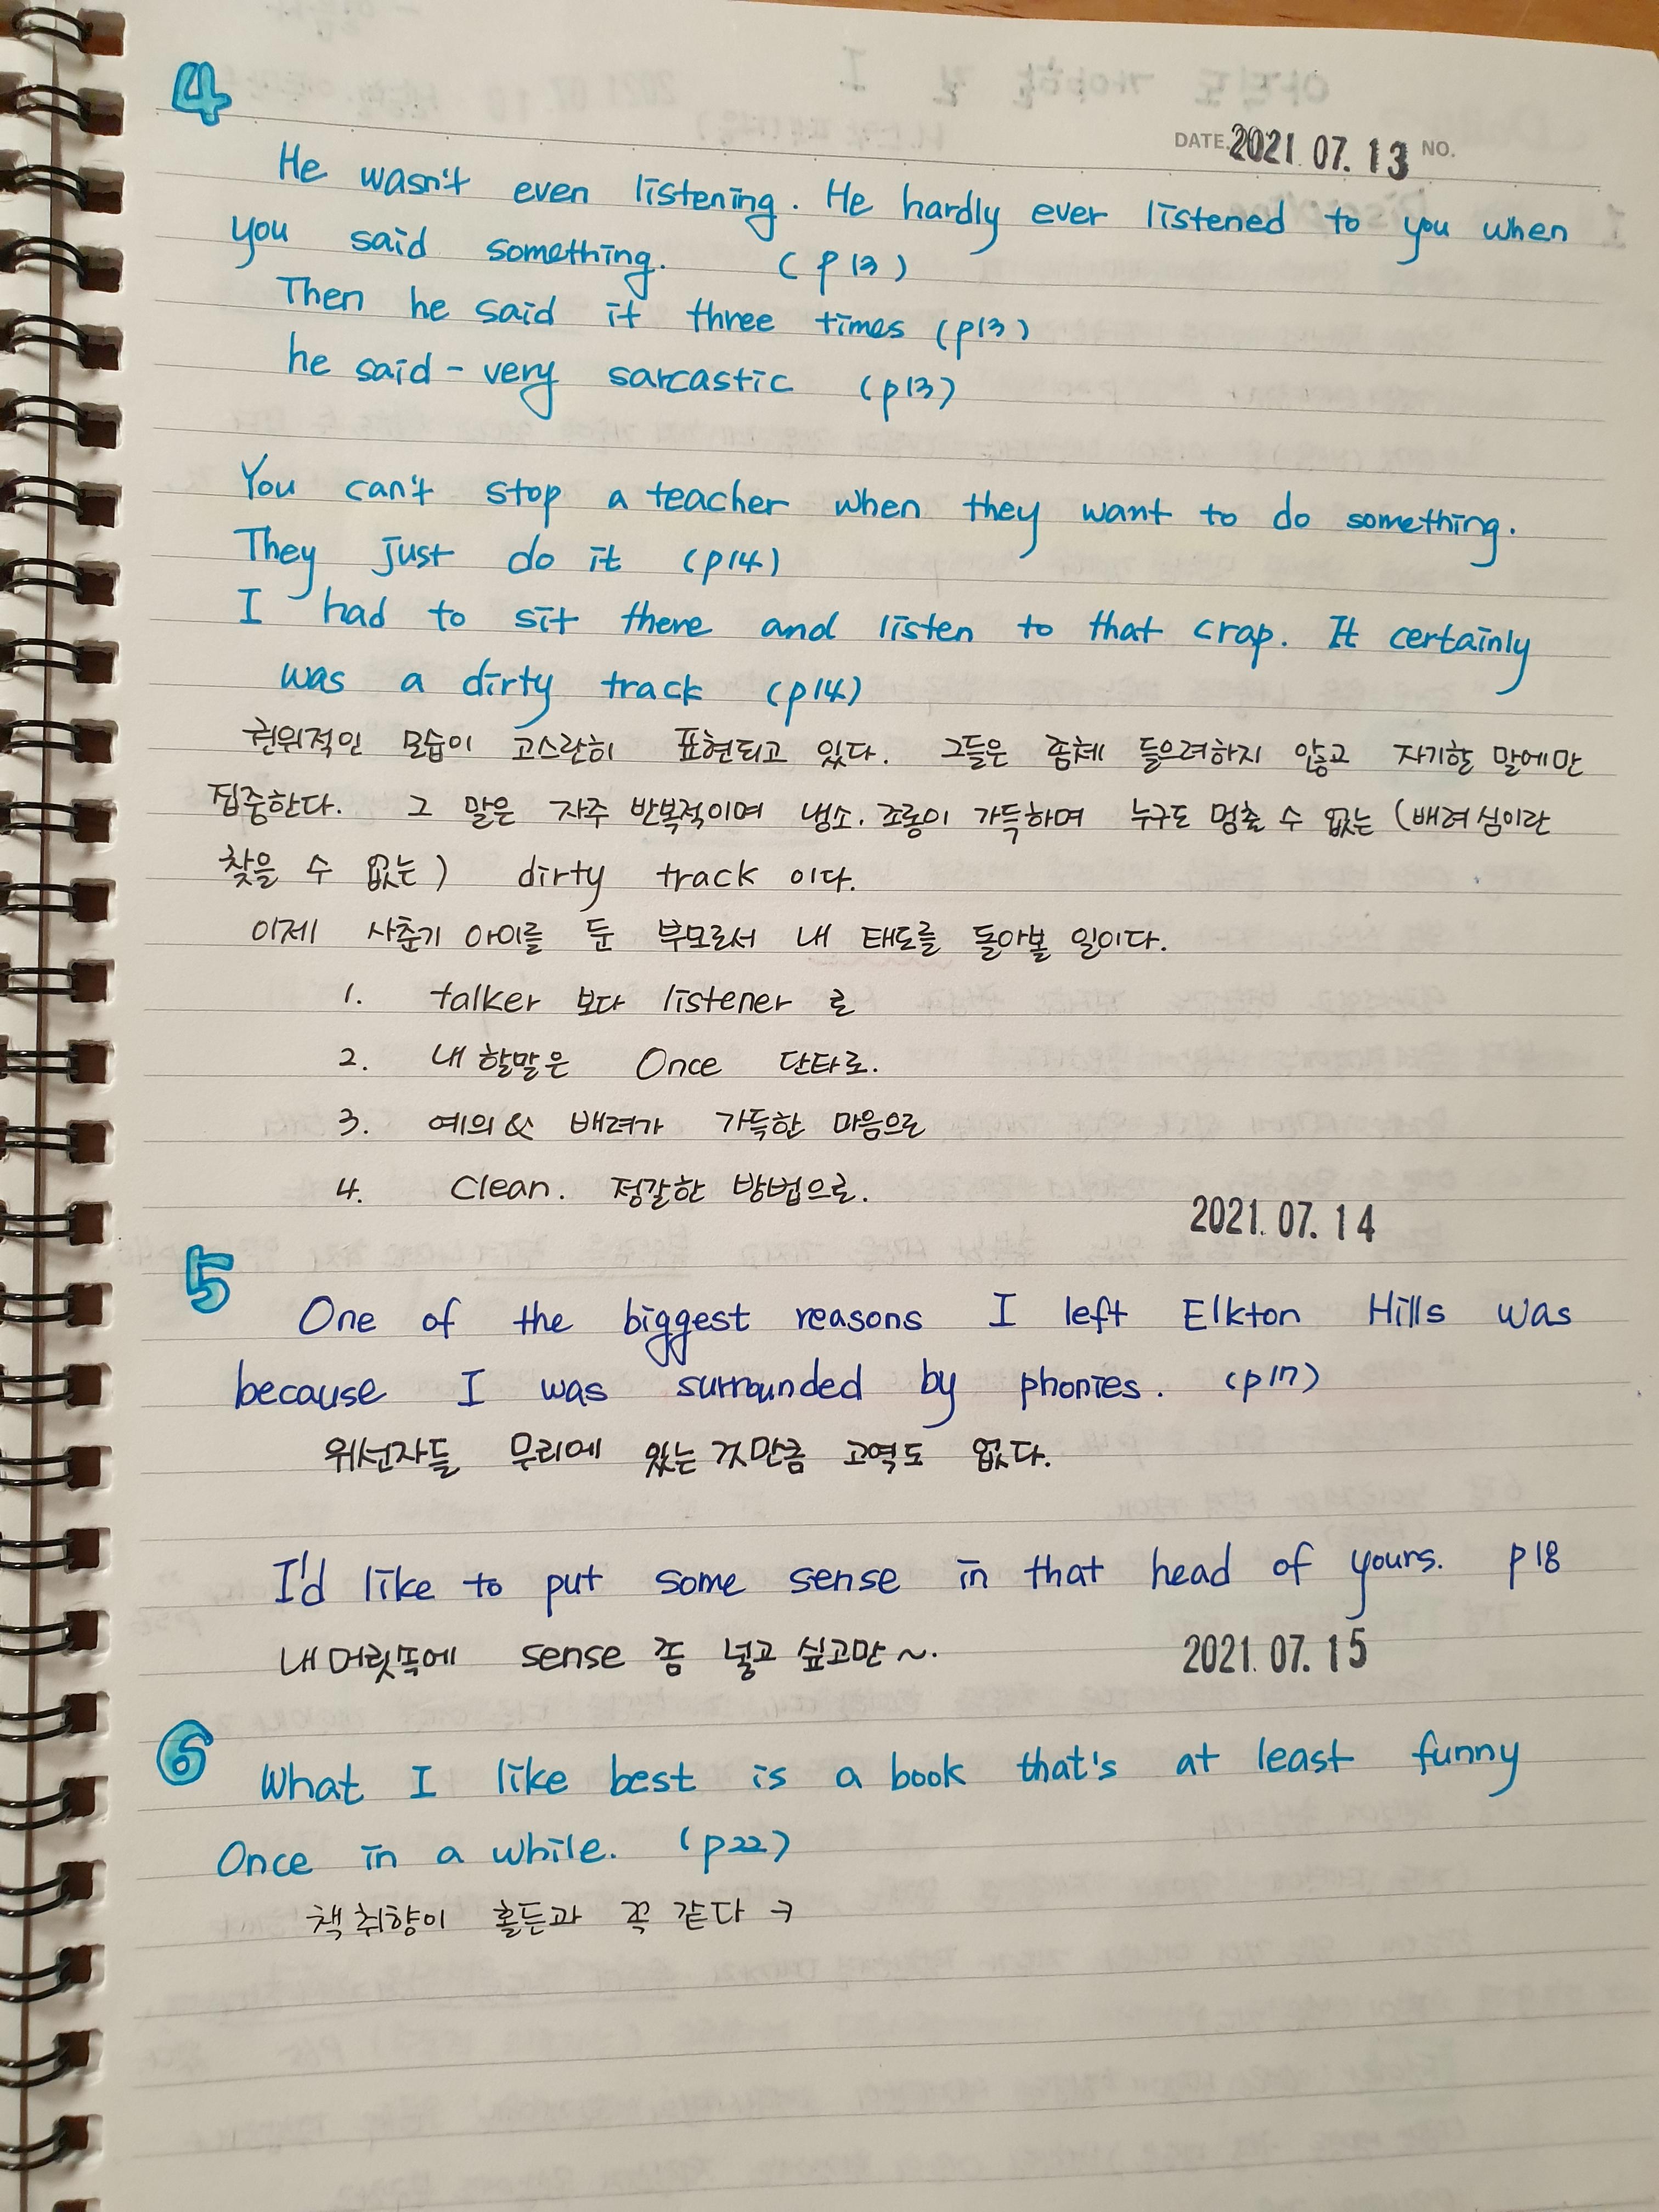 4
DATE. 2021. 07. 13 NO.
He wasn't even listening. He hardly ever listened to you when
you said something. (p13)
Then he said it three times (p13)
he said - very sarcastic (p13)
You can't stop a teacher when they want to do something.
They just do it (p14)
I had to sit there and listen to that crap. It certainly
was a dirty track (p14)
권위적인 모습이 고스란히 표현되고 있다. 그들은 좀체 들으려하지 않고 자기할 말에만
집중한다. 그 말은 자주 반복적이며 냉소. 조롱이 가득하며 누구도 멈출 수 없는 (배려심이란
찾을 수 없는) dirty track 이다.
이제 사춘기 아이를 둔 부모로서 내 태도를 돌아볼 일이다.
1. talker 보다 listener 로
2. 내 할말은 Once 단타로.
3. 예의 & 배려가 가득한 마음으로
4. Clean. 정갈한 방법으로.
2021. 07. 14
5
One of the biggest reasons I left Elkton Hills was
because I was surrounded by phonies. (p17)
위선자들 무리에 있는 것만큼 고역도 없다.
I'd like to put some sense in that head of yours. p18
내 머릿속에 sense 좀 넣고 싶고만~.
2021. 07. 15
6
What I like best is a book that's at least funny
Once in a while. (p22)
책 취향이 홀든과 꼭 같다 ㅋ